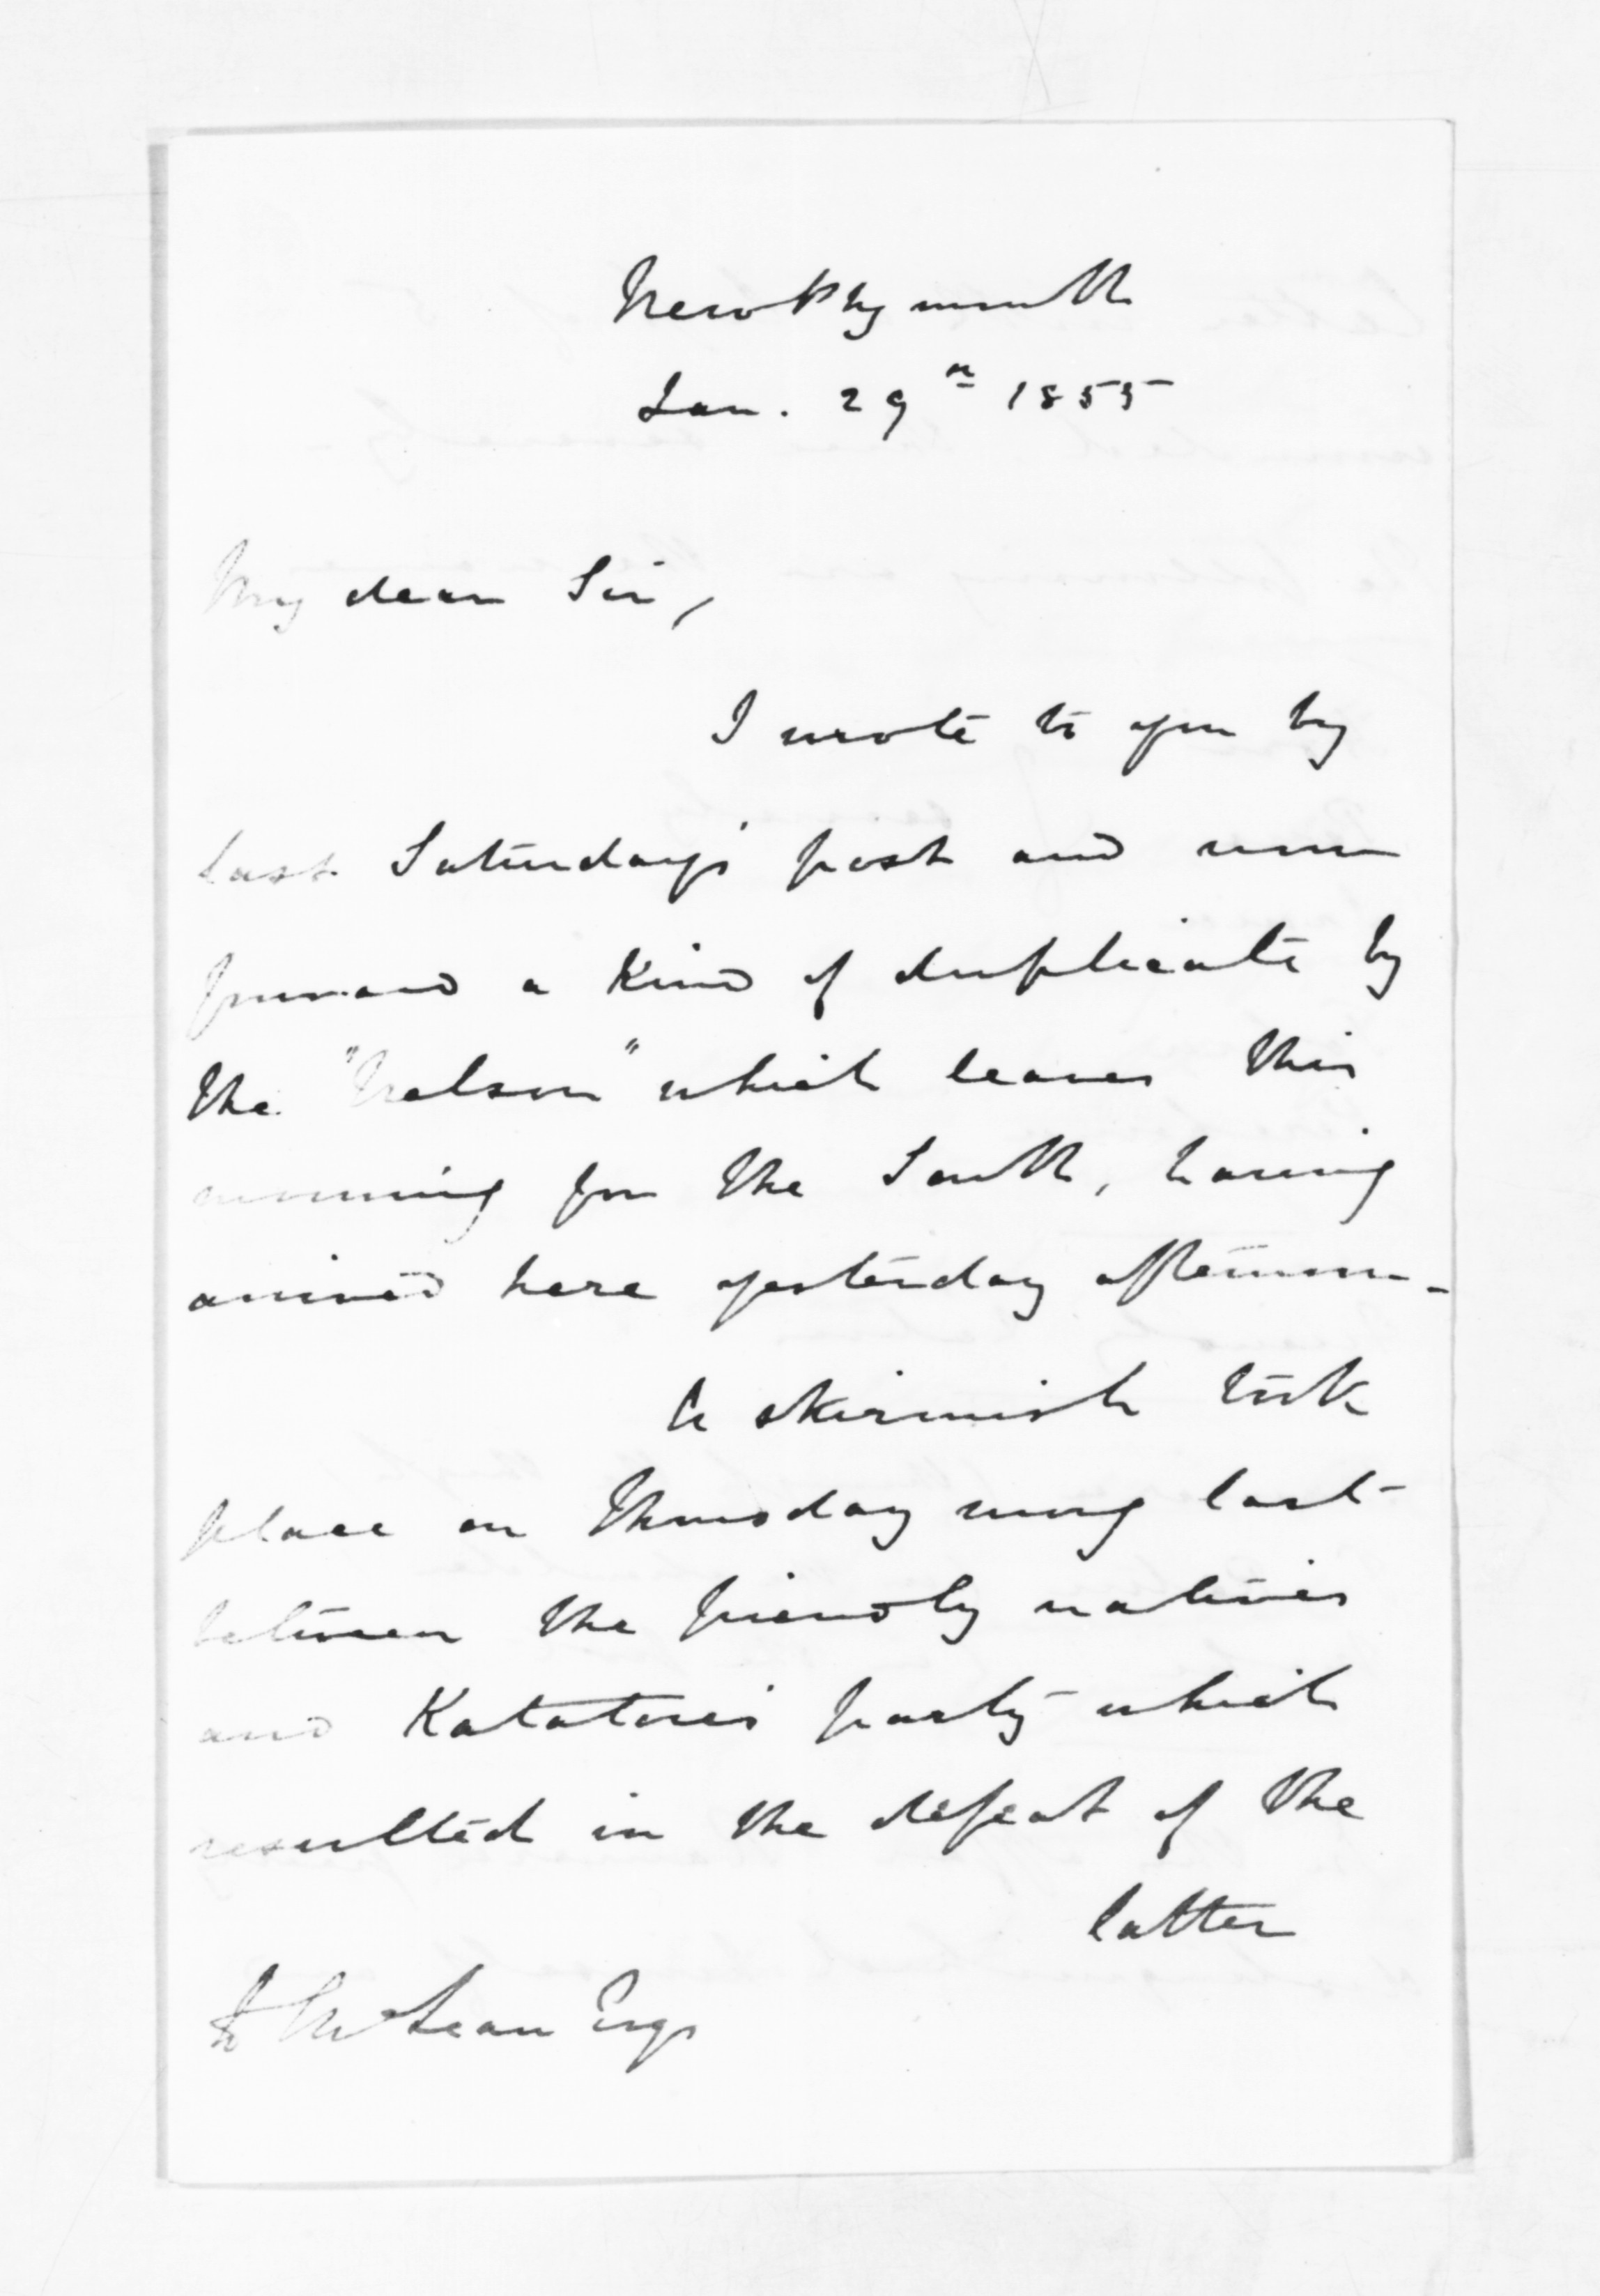 New Plymouth
Jan. 29th 1855
My dear Sir,
I wrote to you by
last Saturday's post and now
forward a kind of duplicate by
the "Nelson" which leaves this
morning for the South, having
arrived here yesterday afternoon -
A skirmish took
place on Thursday mng last
between the friendly natives
and Katatore's party which
resulted in the defeat of the
latter
McLean Esqr